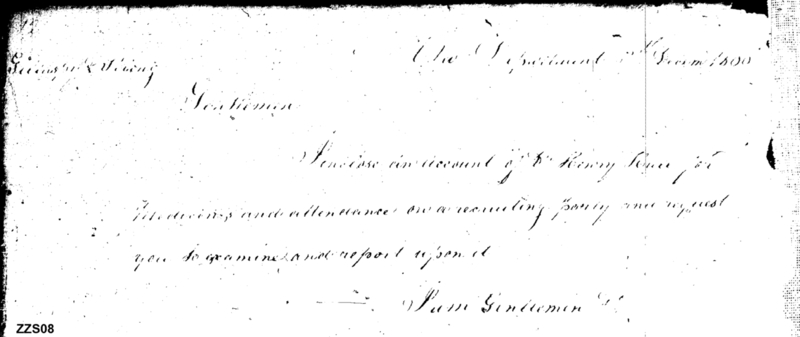 The Department 5th Decem 1800
& Strong
Gentlemen
I enclose an account of Dr Henry for
Medicines and attendance on a recruiting party and request
you to examine and report upon it
I am Gentlemen &c
ZZS08